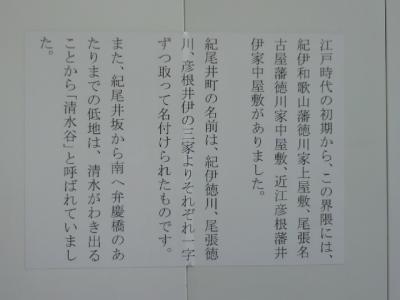 江戸時代の初期から、この界隈には、
紀伊和歌山藩徳川家上屋敷、尾張名
古屋藩徳川家中屋敷、近江彦根藩井
伊家中屋敷がありました。
紀尾井町の名前は、紀伊徳川、尾張徳
川、彦根井伊の三家よりそれぞれ一字
ずつ取って名付けられたものです。
また、紀尾井坂から南へ弁慶橋のあ
たりまでの低地は、清水がわき出る
ことから「清水谷」と呼ばれていまし
た。